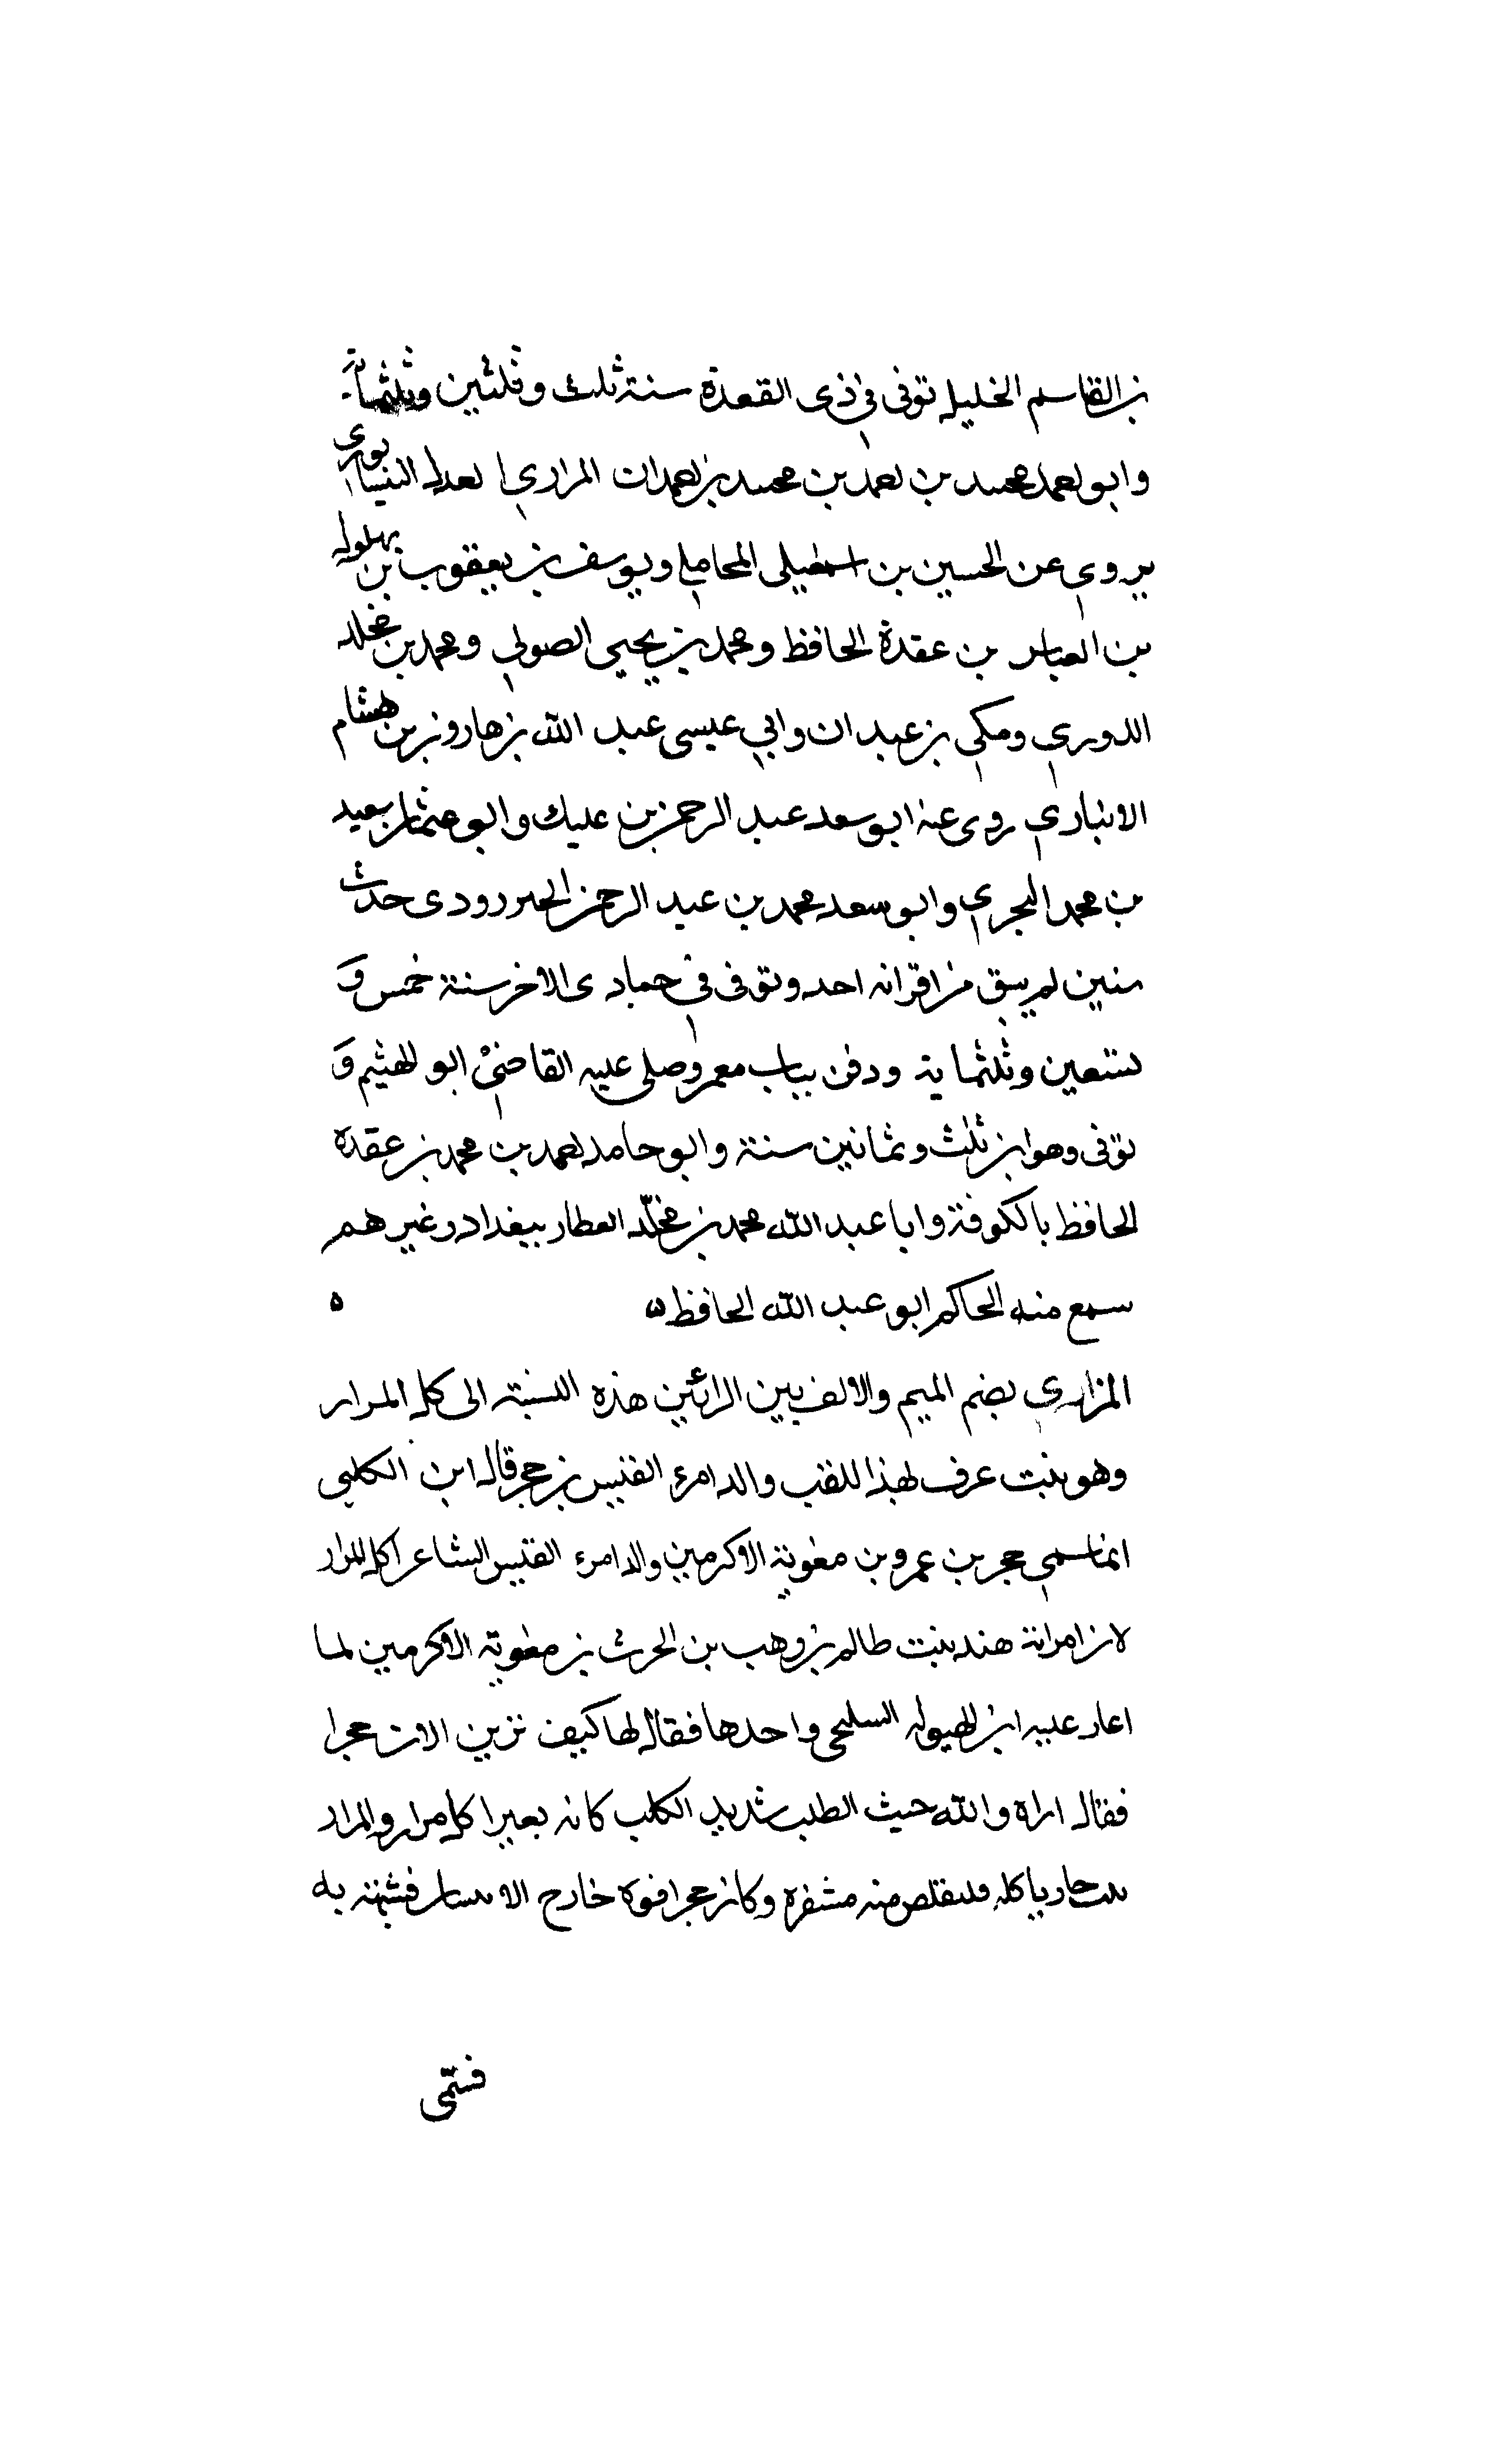 بن القاسم الخليل توفى في ذى القعدة سنة ثلث وثلثين وثلثماية
وابو احمد محمد بن احمد بن محمد بن احمدان المراري العدل النيسابوري
يروى عن الحسين بن اسمعيل المحاملي ويوسف بن يعقوب بن بهلول
بن العباس بن عقدة الحافظ ومحمد بن يحيى الصولي ومحمد بن مخلد
الدوري ومكي بن عبدان وابي عيسى عبد الله بن هارون بن هشام
الانباري روى عنه ابو سعد عبد الرحمن بن عليك وابو عثمان سعيد
بن محمد البحري وابو سعد محمد بن عبد الرحمن الجنزرودى حدث
سنين لم يبق من اقرانه احد وتوفى في جمادى الاخر سنة خمس و
تسعين وثلثماية ودفن بباب معمر وصلى عليه القاضي ابو الهيثم و
توفى وهو ابن ثلث وثمانين سنة وابو حامد احمد بن محمد بن عقدة
الحافظ بالكوفة وابا عبد الله محمد بن مخلد العطار ببغداد وغيرهم
سمع منه الحاكم ابو عبد الله الحافظ ه ه
المزاري بضم الميم والالف بين الرائين هذه النسبة الى كل المرار
وهو نبت عرف بهذا اللقب والد امرء القيس بن حجر قال ابن الكلبي
انما سمي حجر بن عمرو بن معوية الاكرمين والد امرء القيس الشاعر اكل المرار
لان امراته هند بنت ظالم بن وهب بن الحرث بن معوية الاكرمين لما
اغار عليه ابن الهيولة السليحى واخذها فقال لها كيف ترين الان حجرا
فقال اراه والله حيث الطلب شديد الكلب كانه بعير اكل مرار والمرار
نبت حار ياكله فيتقلص منه مشفره وكان حجر افوه خارج الاسنان فشبهته به
فسمى